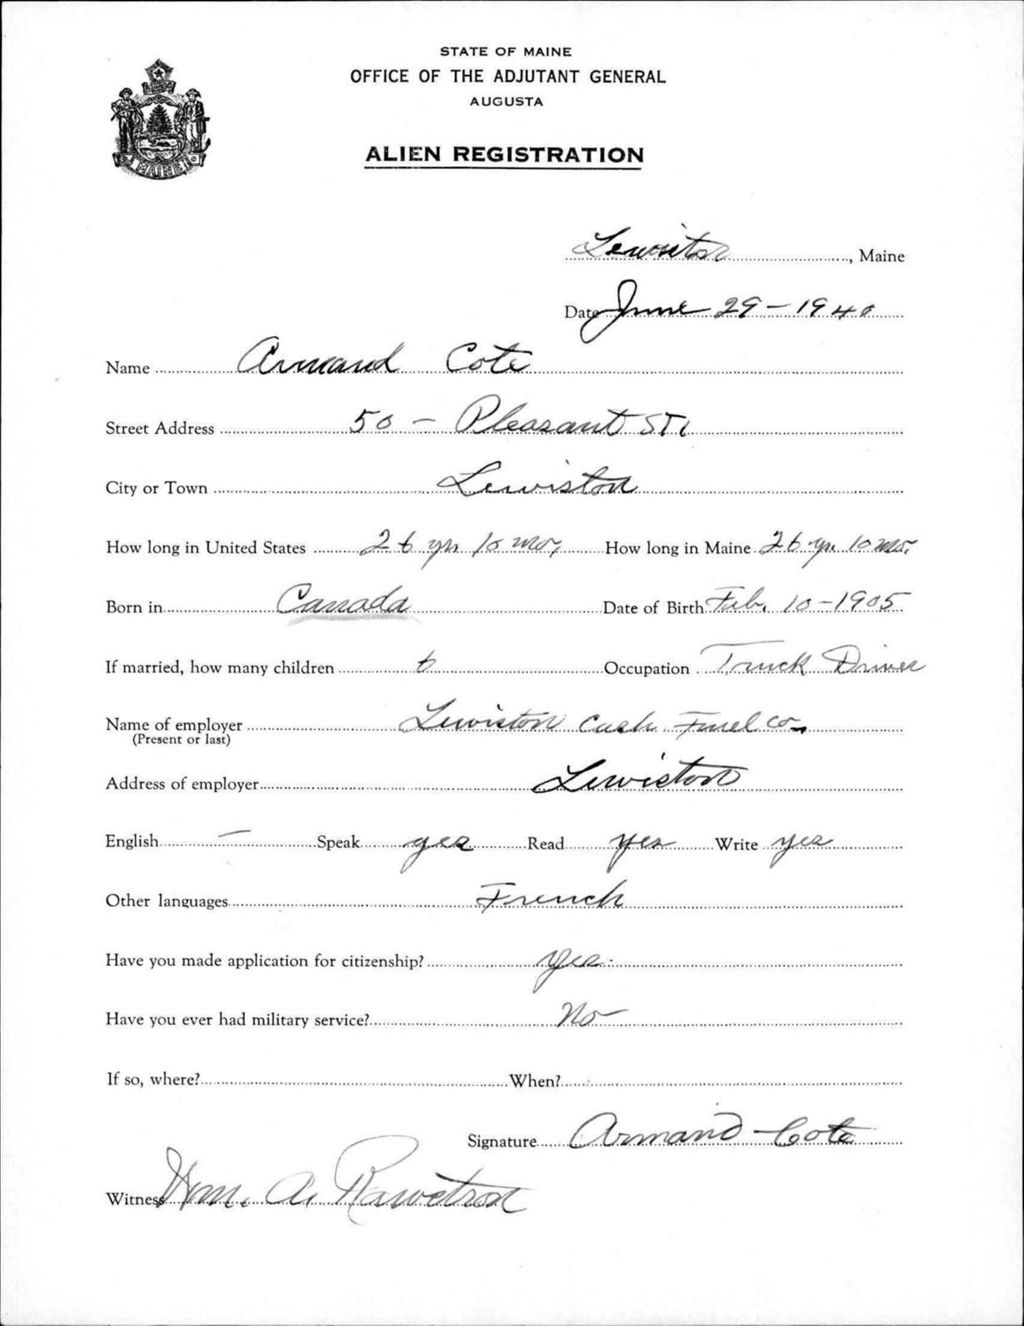 STATE OF MAINE
OFFICE OF THE ADJUTANT GENERAL
AUGUSTA
MAINE
ALIEN REGISTRATION
Lewiston, Maine
Date June 29-1940
Name Armand Cote
Street Address 50 - Pleasant St.
City or Town Lewiston
How long in United States 26 yrs 10 mos, How long in Maine 26 yrs 10 mos.
Born in Canada Date of Birth Feb. 10-1905
If married, how many children 6 Occupation Truck Driver
Name of employer Lewiston Cash Fuel Co.
(Present or last)
Address of employer Lewiston
English — Speak yes Read yes Write yes
Other languages French
Have you made application for citizenship? yes.
Have you ever had military service? No
If so, where? When?
Signature Armand Cote
Witness Wm. A.